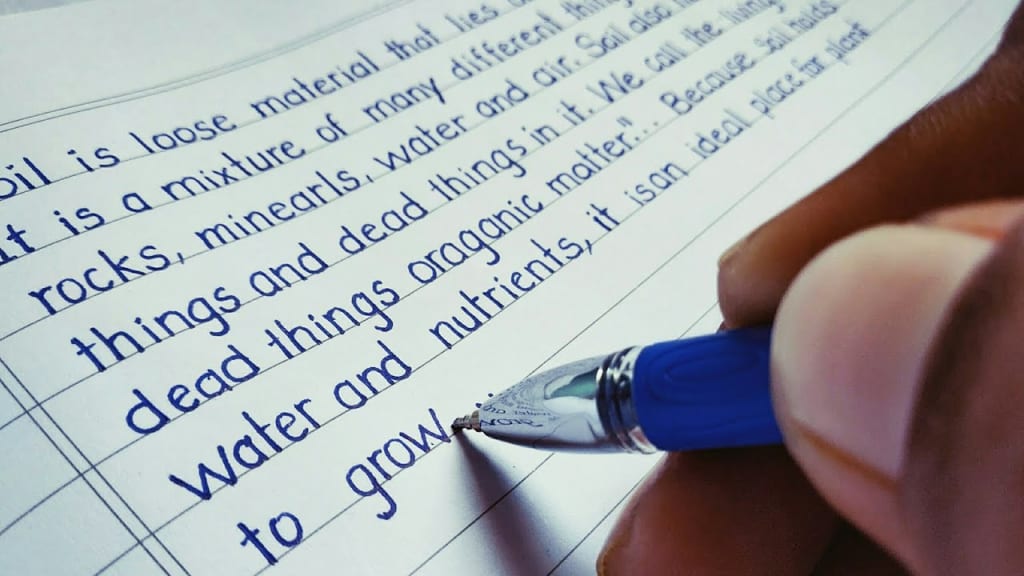 oil is loose material that lies
It is a mixture of many different thing
rocks, minearls, water and air. Soil also ha
things and dead things in it. We call the living
dead things oraganic matter."... Because soil holds
water and nutrients, it isan ideal place for plant
to grow.